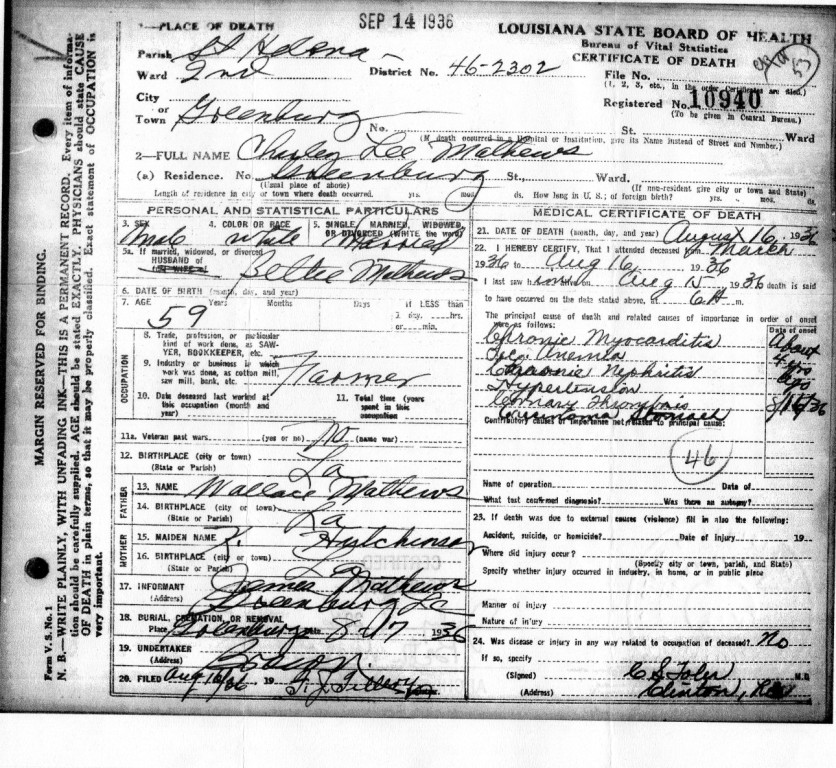 SEP 14 1936
1—PLACE OF DEATH
LOUISIANA STATE BOARD OF HEALTH
Bureau of Vital Statistics
CERTIFICATE OF DEATH
Parish St Helena
Ward 2nd
District No. 46-2302
File No.
(1, 2, 3, etc., in the order Certificates are filed.)
53
Registered No. 10940
(To be given in Central Bureau.)
City or Town Greenburg
No. St. Ward
(If death occurred in a Hospital or Institution, give its Name instead of Street and Number.)
2—FULL NAME Lee Mathews
(a) Residence. No. Greenburg St., Ward.
(Usual place of abode) (If non-resident give city or town and State)
Length of residence in city or town where death occurred. yrs. mos. ds. How long in U. S.; of foreign birth? yrs. mos. ds.
PERSONAL AND STATISTICAL PARTICULARS
3. SEX 4. COLOR OR RACE 5. SINGLE, MARRIED, WIDOWED, OR DIVORCED (WRITE the word)
Male White Married
5a. If married, widowed, or divorced
HUSBAND of Bettie Mathews
(or WIFE of)
6. DATE OF BIRTH (month, day, and year)
7. AGE Years Months Days If LESS than
59 1 day, hrs.
or min.
OCCUPATION
8. Trade, profession, or particular kind of work done, as SAWYER, BOOKKEEPER, etc.
9. Industry or business in which work was done, as cotton mill, saw mill, bank, etc.
Farmer
10. Date deceased last worked at this occupation (month and year)
11. Total time (years) spent in this occupation
11a. Veteran past wars. (yes or no) no (name war)
12. BIRTHPLACE (city or town) La
(State or Parish)
FATHER
13. NAME Wallace Mathews
14. BIRTHPLACE (city or town) La
(State or Parish)
MOTHER
15. MAIDEN NAME Hutchinson
16. BIRTHPLACE (city or town) La
(State or Parish)
17. INFORMANT James Mathews
(Address) Greenburg La
18. BURIAL, CREMATION, OR REMOVAL
Place Greenburg Date 8-17 1936
19. UNDERTAKER
(Address)
20. FILED Aug 16/36 19
MEDICAL CERTIFICATE OF DEATH
21. DATE OF DEATH (month, day, and year) August 16, 1936
22. I HEREBY CERTIFY, That I attended deceased from March
1936 to Aug 16 1936
I last saw him alive on Aug 15 1936 death is said
to have occurred on the date stated above, at 6A m.
The principal cause of death and related causes of importance in order of onset were as follows:
Date of onset
Chronic Myocarditis About
Anemia 4 yrs
Chronic Nephritis ago
Hypertension
Coronary Thrombosis 8/16/36
Contributory causes of importance not related to principal cause:
Stomach
46
Name of operation Date of
What test confirmed diagnosis? Was there an autopsy?
23. If death was due to external causes (violence) fill in also the following:
Accident, suicide, or homicide? Date of injury 19
Where did injury occur?
(Specify city or town, parish, and State)
Specify whether injury occurred in industry, in home, or in public place
Manner of injury
Nature of injury
24. Was disease or injury in any way related to occupation of deceased? No
If so, specify
(Signed) C S Toler M.D.
(Address) Clinton, La
MARGIN RESERVED FOR BINDING.
Form V. S. No. 1
N. B.—WRITE PLAINLY, WITH UNFADING INK—THIS IS A PERMANENT RECORD. Every item of information should be carefully supplied. AGE should be stated EXACTLY. PHYSICIANS should state CAUSE OF DEATH in plain terms, so that it may be properly classified. Exact statement of OCCUPATION is very important.